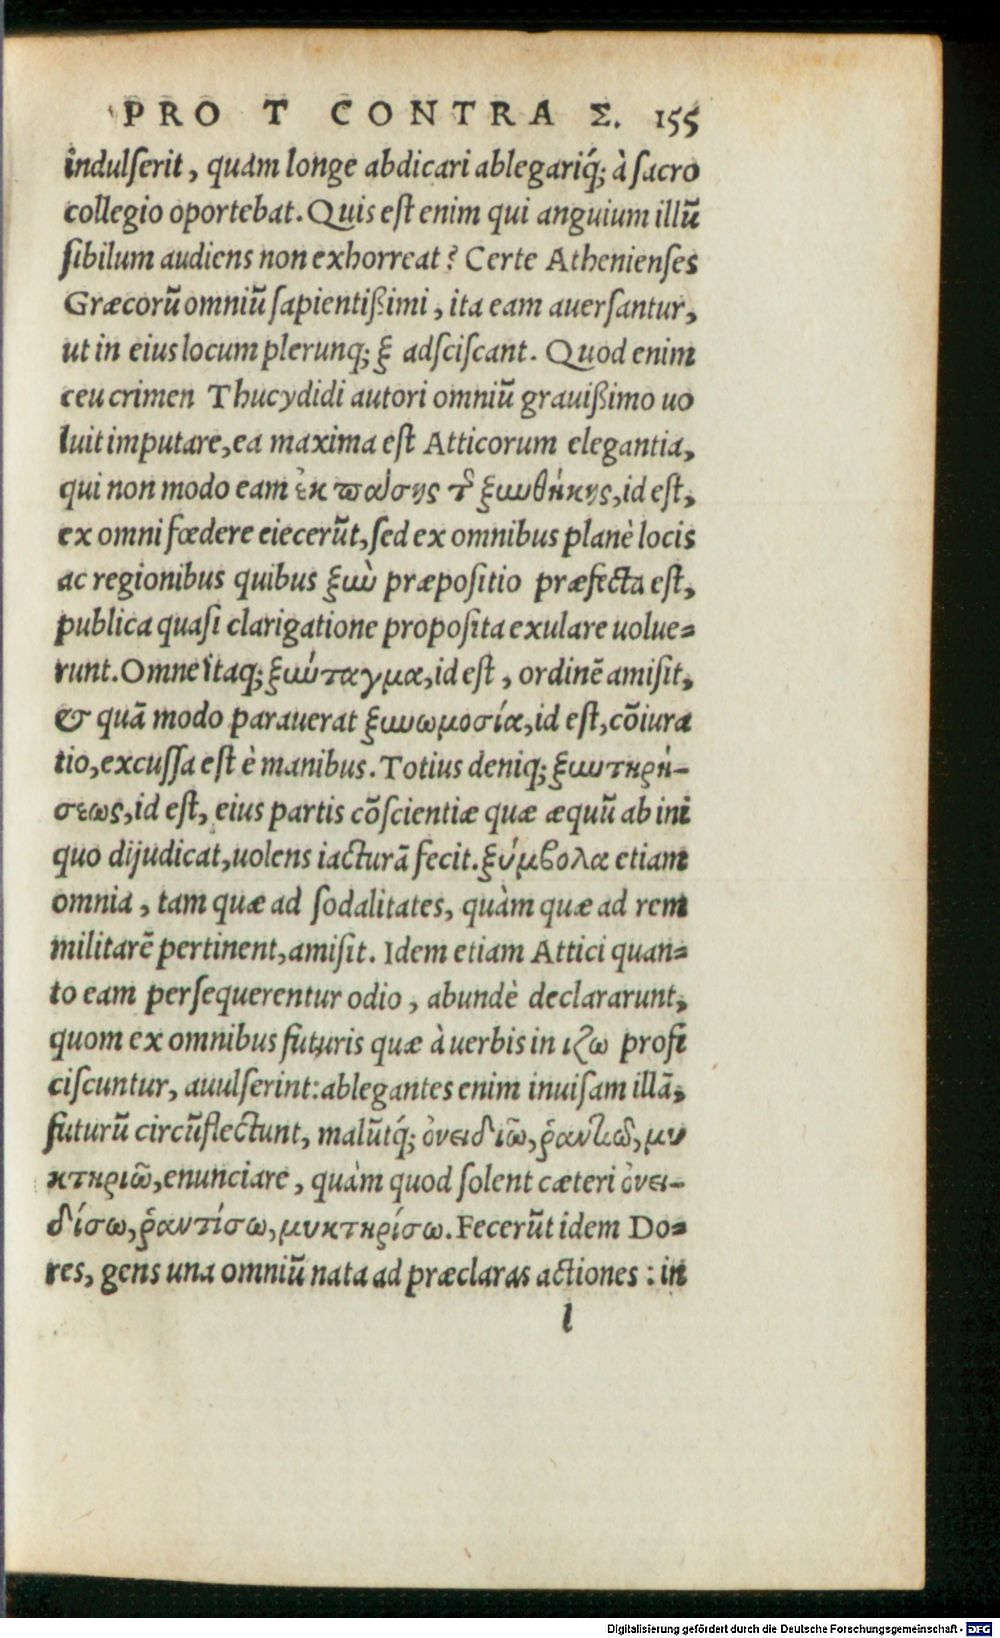 PRO T CONTRA Σ. 155
indulſerit, quàm longe abdicari ablegariq́; à ſacro
collegio oportebat. Quis eſt enim qui anguium illũ
ſibilum audiens non exhorreat? Certe Athenienſes
Græcorũ omniũ ſapientiſſimi, ita eam auerſantur,
ut in eius locum plerunq; ξ adſciſcant. Quod enim
ceu crimen Thucydidi autori omniũ grauiſſimo uo
luit imputare, ea maxima eſt Atticorum elegantia,
qui non modo eam ἐκ πάσης τ̃ ξυνθήκης, id eſt,
ex omni fœdere eiecerũt, ſed ex omnibus planè locis
ac regionibus quibus ξὺν præpoſitio præfecta eſt,
publica quaſi clarigatione propoſita exulare uolue=
runt. Omne itaq; ξύνταγμα, id eſt, ordinẽ amiſit,
& quã modo parauerat ξυνωμοσία, id eſt, cõiura
tio, excuſſa eſt è manibus. Totius deniq; ξυντηρή-
σεως, id eſt, eius partis cõſcientiæ quæ æquũ ab ini
quo dijudicat, uolens iacturã fecit. ξύμβολα etiam
omnia, tam quæ ad ſodalitates, quàm quæ ad rem
militarẽ pertinent, amiſit. Idem etiam Attici quan=
to eam perſequerentur odio, abundè declararunt,
quom ex omnibus futuris quæ à uerbis in ιζω profi
ciſcuntur, auulſerint: ablegantes enim inuiſam illã,
futurũ circũflectunt, malũtq́; ὀνειδιῶ, ῥαντιῶ, μυ
κτηριῶ, enunciare, quàm quod ſolent cæteri ὀνει-
δίσω, ῥαντίσω, μυκτηρίσω. Fecerũt idem Do=
res, gens una omniũ nata ad præclaras actiones: in
l
Digitalisierung gefördert durch die Deutsche Forschungsgemeinschaft - DFG